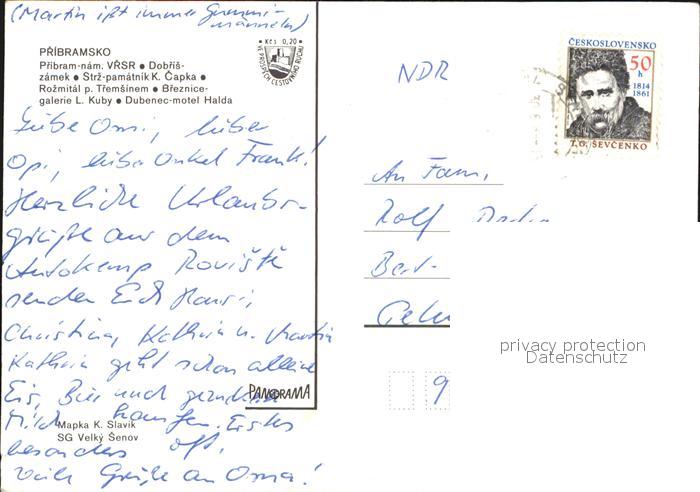 (Martin ißt immer Gummi-
männeln)
PŘÍBRAMSKO
Příbram-nám. VŘSR ● Dobříš-
zámek ● Strž-památník K. Čapka ●
Rožmitál p. Třemšínem ● Březnice-
galerie L. Kuby ● Dubenec-motel Halda
Kčs 0,20
VE PROSPĚCH CESTOVNÍHO RUCHU
Liebe Omi, lieber
Opi, lieber Onkel Frank!
Herzliche Urlaubs-
grüße aus dem
Autokemp Roviště
senden Euch Hansi,
Christina, Kathrin u. Martin
Kathrin geht schon alleine
Eis, Bier und
Milch kaufen. Eis
besonders oft.
Viele Grüße an Oma!
PANORAMA
Mapka K. Slavík
SG Velký Šenov
NDR
ČESKOSLOVENSKO
50
h
1814
1861
T.G. ŠEVČENKO
An Fam.
Rolf
9
privacy protection
Datenschutz